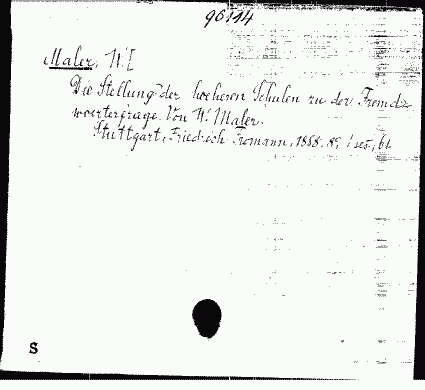 96114
Maler, W.
Die Stellung der hoeheren Schulen zu der Fremd-
woerterfrage. Von W. Maler.
Stuttgart, Friedrich Fromann, 1888. 8º, 61.
S